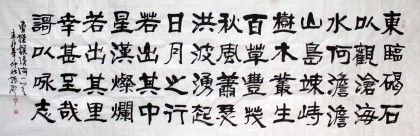 東臨碣石
以觀滄海
水何澹澹
山島竦峙
樹木叢生
百草豐茂
秋風蕭瑟
洪波湧起
日月之行
若出其中
星漢燦爛
若出其里
幸甚至哉
謌以詠志
曹操觀滄海一首